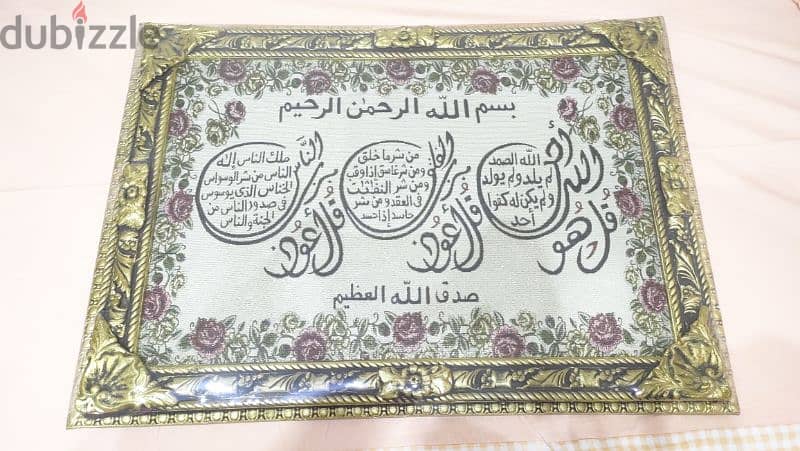 dubizzle
بسم الله الرحمن الرحيم
قل هو الله أحد
الله الصمد
لم يلد ولم يولد
ولم يكن له كفوا
أحد
قل أعوذ برب الفلق
من شر ما خلق
ومن شر غاسق إذا وقب
ومن شر النفاثات
في العقد ومن شر
حاسد إذا حسد
قل أعوذ برب الناس
ملك الناس إله
الناس من شر الوسواس
الخناس الذي يوسوس
في صدور الناس من
الجنة والناس
صدق الله العظيم